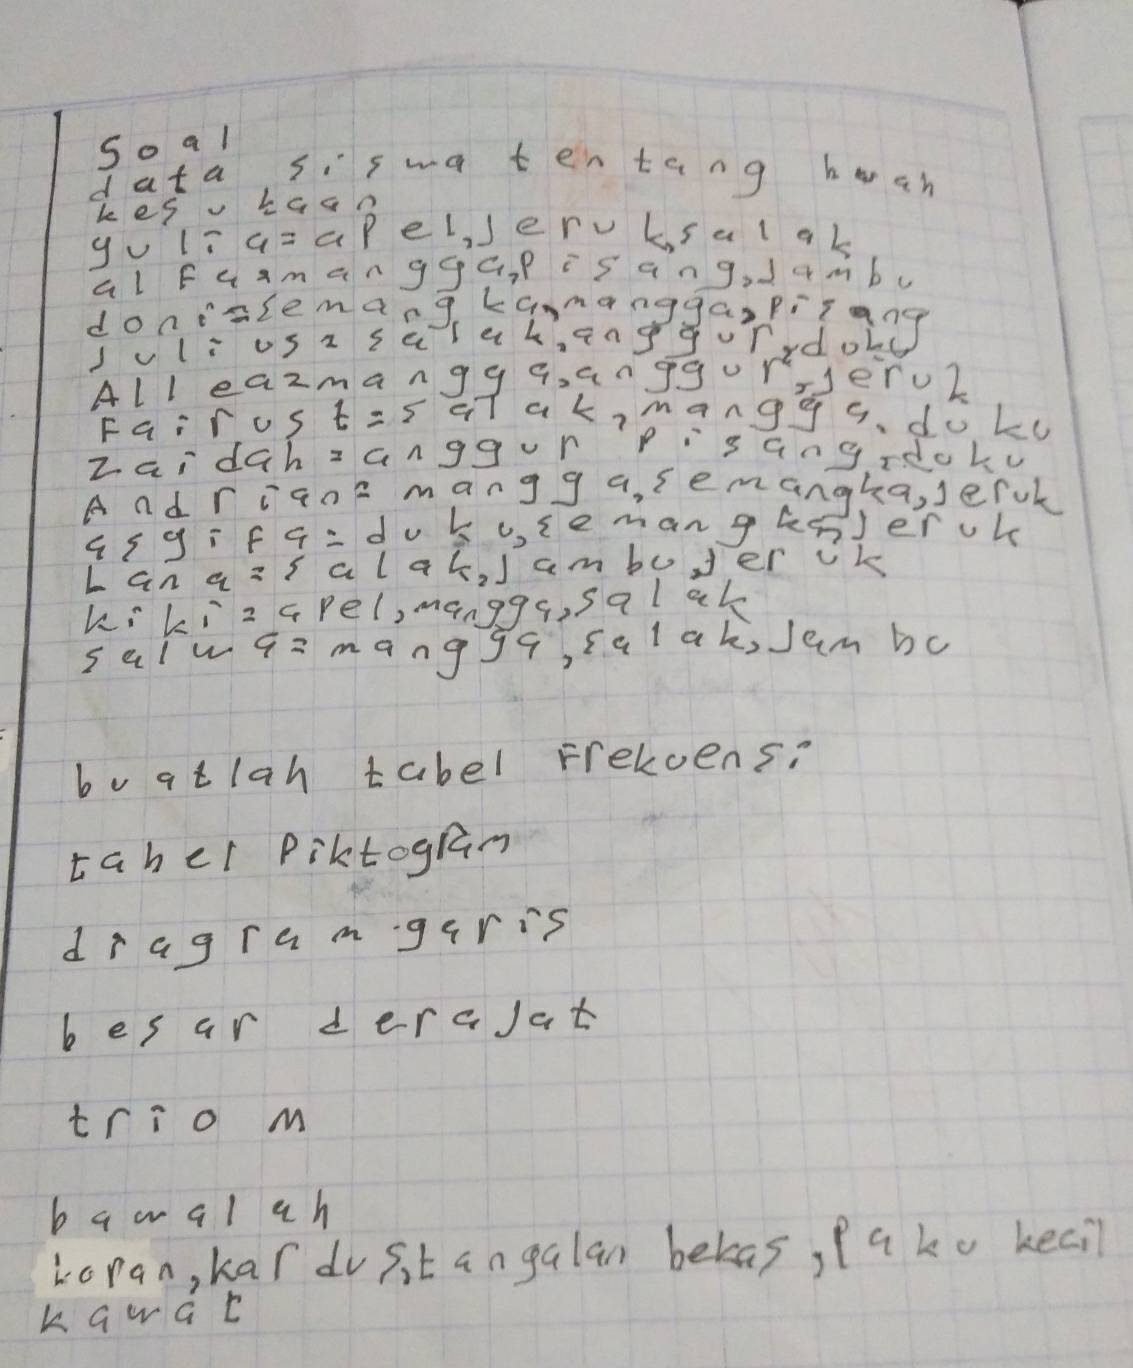 Soal
data siswa tentang buah
kesukaan
yulia=apel,Jeruk,salak
alfa=mangga,pisang,Jambu
doni=semangka,mangga,pisang
Julius=salak,anggur,duku
Allea=mangga,anggur,jeruk
Fairust=salak,mangga,duku
Zaidah=anggur pisang,duku
Andrian=mangga,semangka,Jeruk
asyifa=duku,semangka,Jeruk
Lana=salak,Jambu,Jeruk
kiki=apel,mangga,salak
salwa=mangga,salak,Jambu
buatlah tabel Frekuensi
tabel Piktogram
diagram garis
besar deraJat
trio M
bawalah
koran,kardus,tangalan bekas,paku kecil
kawat